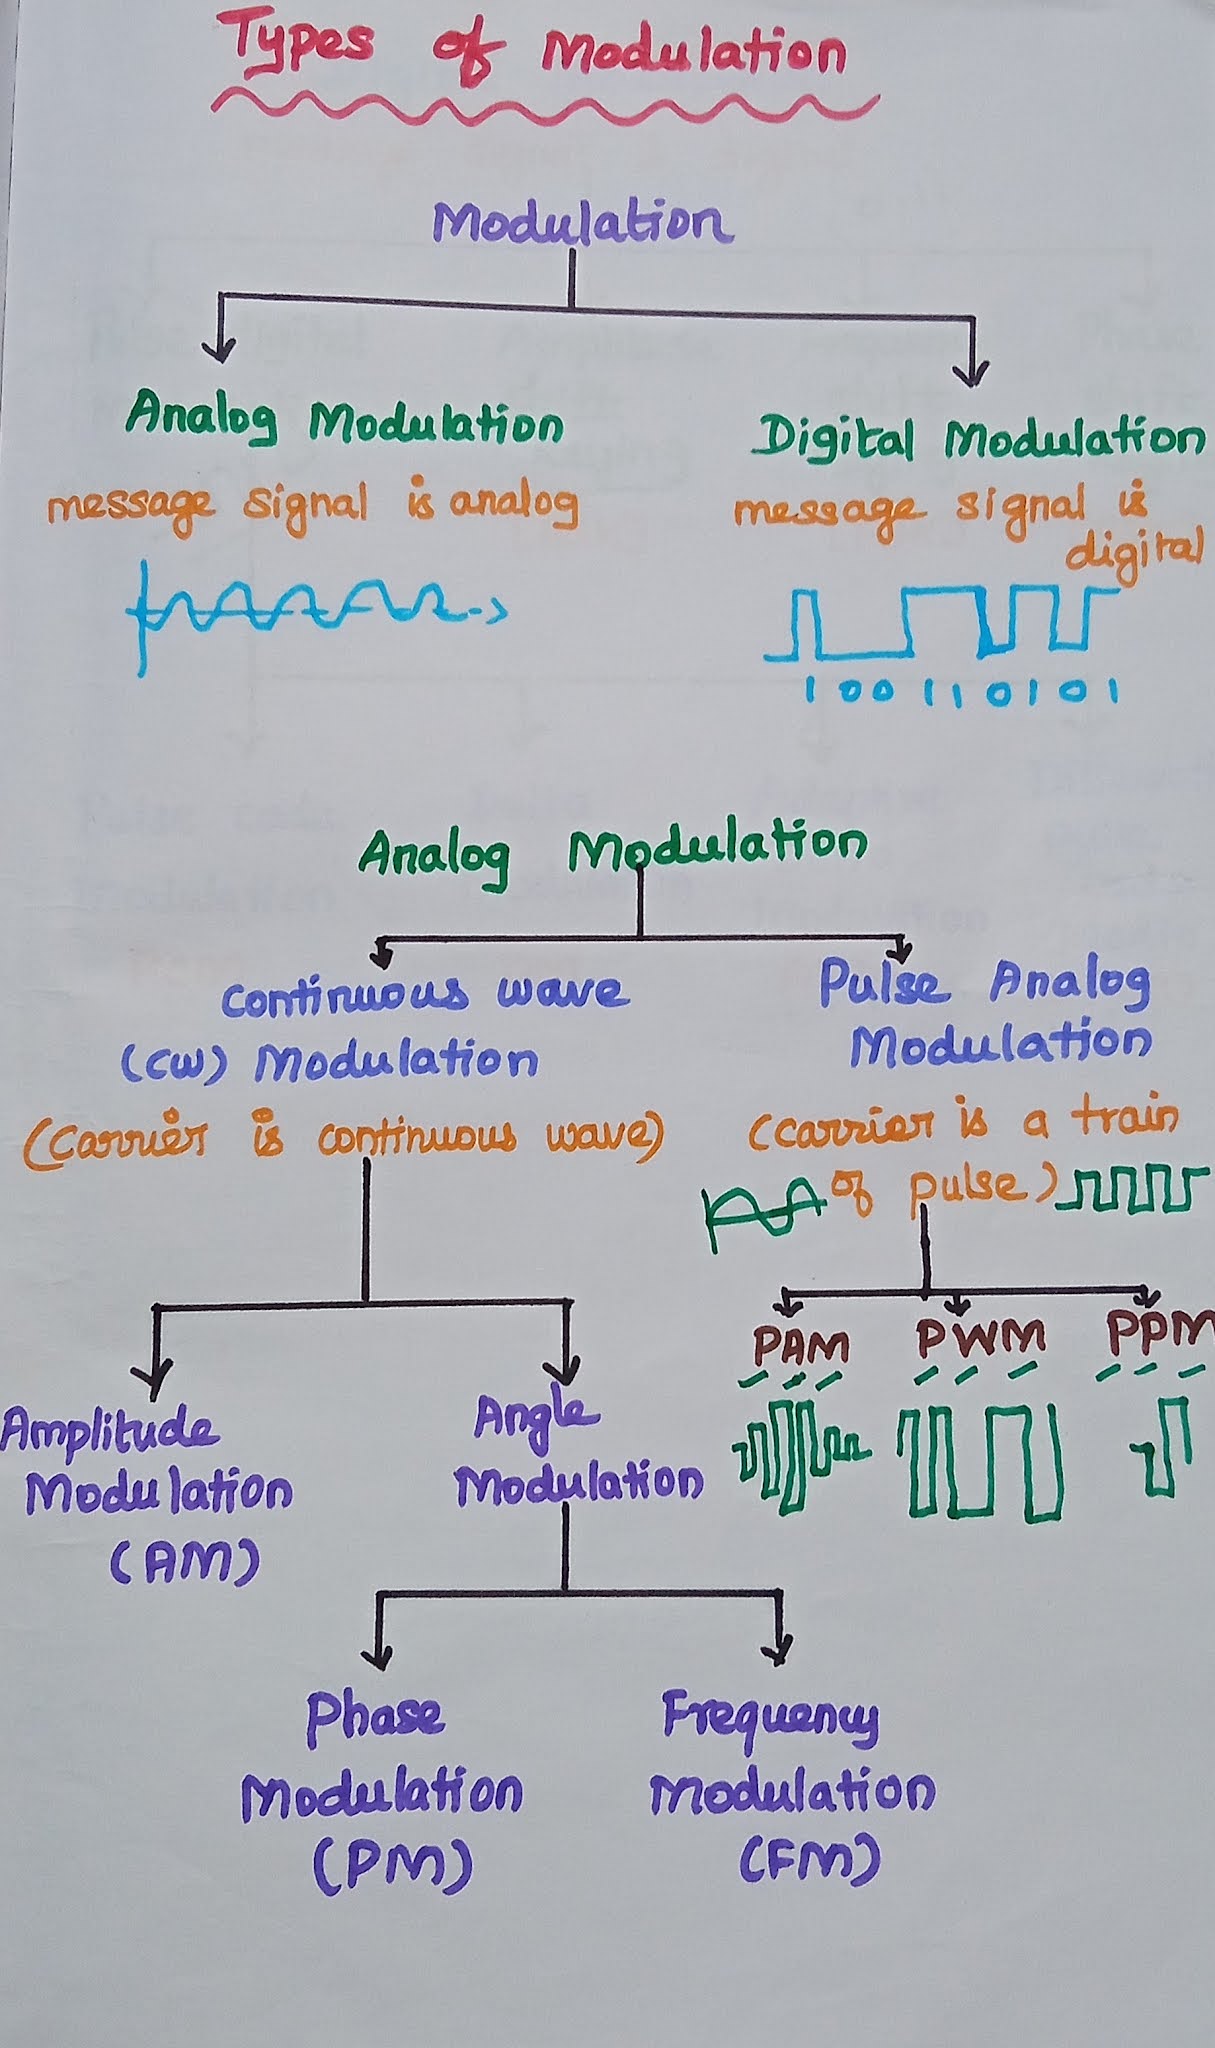 Types of Modulation
Modulation
Analog Modulation
Digital Modulation
message signal is analog
message signal is
digital
1 0 0 1 1 0 1 0 1
Analog Modulation
continuous wave
(CW) Modulation
(Carrier is continuous wave)
Pulse Analog
Modulation
(carrier is a train
of pulse)
PAM PWM PPM
Amplitude
Modulation
(AM)
Angle
Modulation
Phase
Modulation
(PM)
Frequency
Modulation
(FM)